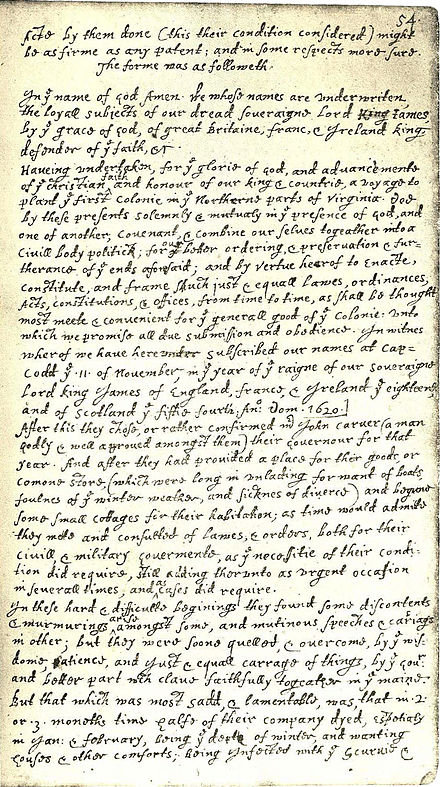 54
Acts by them done (this their condition considered) might
be as firme as any patent; and in some respects more sure.
The forme was as followeth.
In yͤ name of god Amen. We whose names are underwriten,
the loyall subjects of our dread soveraigne Lord King James
by yͤ grace of god, of great Britaine, franc, & Ireland king,
defender of yͤ faith, &c
Haveing undertaken, for yͤ glorie of god, and advancemente
of yͤ christian faith and honour of our king & countrie, a voyage to
plant yͤ first colonie in yͤ Northerne parts of Virginia. Doe
by these presents solemnly & mutualy in yͤ presence of god, and
one of another, covenant, & combine our selves togeather into a
civill body politick; for our better ordering, & preservation & fur-
therance of yͤ ends aforesaid; and by vertue hearof to enacte,
constitute, and frame shuch just & equall lawes, ordinances,
Acts, constitutions, & offices, from time to time, as shall be thought
most meete & convenient for yͤ generall good of yͤ colonie: unto
which we promise all due submission and obedience. In witnes
wherof we have hereunder subscribed our names at Cap-
Codd yͤ .11. of November, in yͤ year of yͤ raigne of our soveraigne
Lord king James of England, france, & Ireland yͤ eighteenth
and of Scotland yͤ fiftie fourth. Anᵒ: Dom. 1620.]
After this they chose, or rather confirmed mʳ John Carver (a man
godly & well approved amongst them) their governour for that
year. And after they had provided a place for their goods, or
comone store, (which were long in unlading for want of boats,
foulnes of yͤ winter weather, and sicknes of diverce) and begune
some small cottages for their habitation; as time would admitte
they mette and consulted of lawes, & orders, both for their
civill & military govermente, as yͤ necessitie of their condi-
tion did require, still adding therunto as urgent occasion
in severall times, and as cases did require.
In these hard & difficulte beginings they found some discontents
& murmurings arise amongst some, and mutinous speeches & cariags
in other; but they were soone quelled, & overcome, by yͤ wis-
dome, patience, and just & equall carrage of things, by yͤ govʳ:
and better part wᶜʰ clave faithfully togeather in yͤ maine.
But that which was most sadd, & lamentable, was that in .2.
or .3. moneths time halfe of their company dyed, espetialy
in Jan: & february, being yͤ depth of winter, and wanting
houses & other comforts; being Infected with yͤ Scurvie &